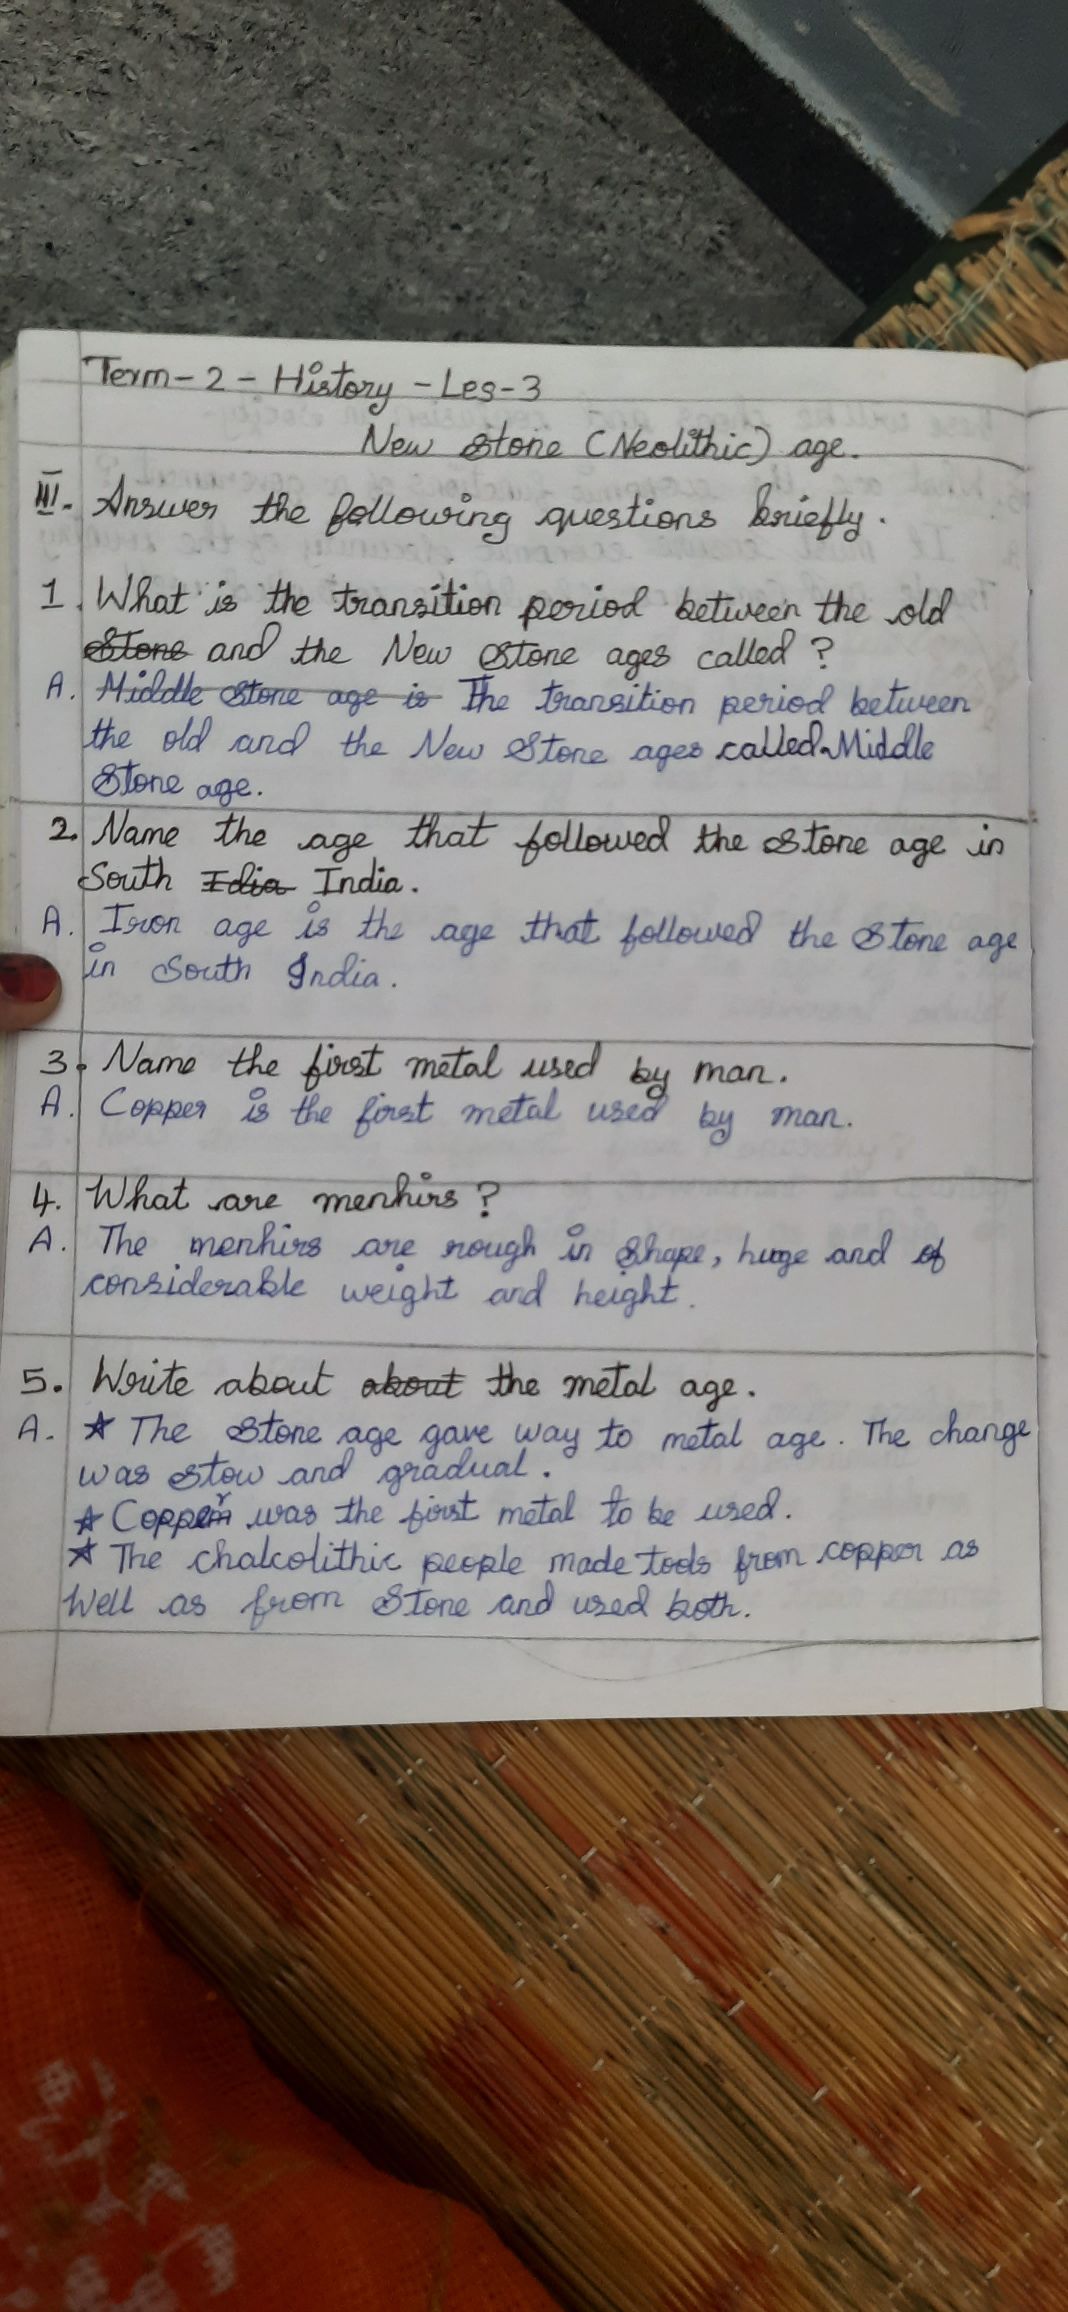 Term - 2 - History - Les - 3
New Stone (Neolithic) age.
III. Answer the following questions briefly.
1. What is the transition period between the old
Stone and the New Stone ages called?
A. Middle Stone age is The transition period between
the old and the New Stone ages called Middle
Stone age.
2. Name the age that followed the Stone age in
South Idia India.
A. Iron age is the age that followed the Stone age
in South India.
3. Name the first metal used by man.
A. Copper is the first metal used by man.
4. What are menhirs?
A. The menhirs are rough in Shape, huge and of
considerable weight and height.
5. Write about about the metal age.
A. ★ The Stone age gave way to metal age. The change
was stow and gradual.
★ Copper was the first metal to be used.
★ The chalcolithic people made tools from copper as
Well as from Stone and used both.